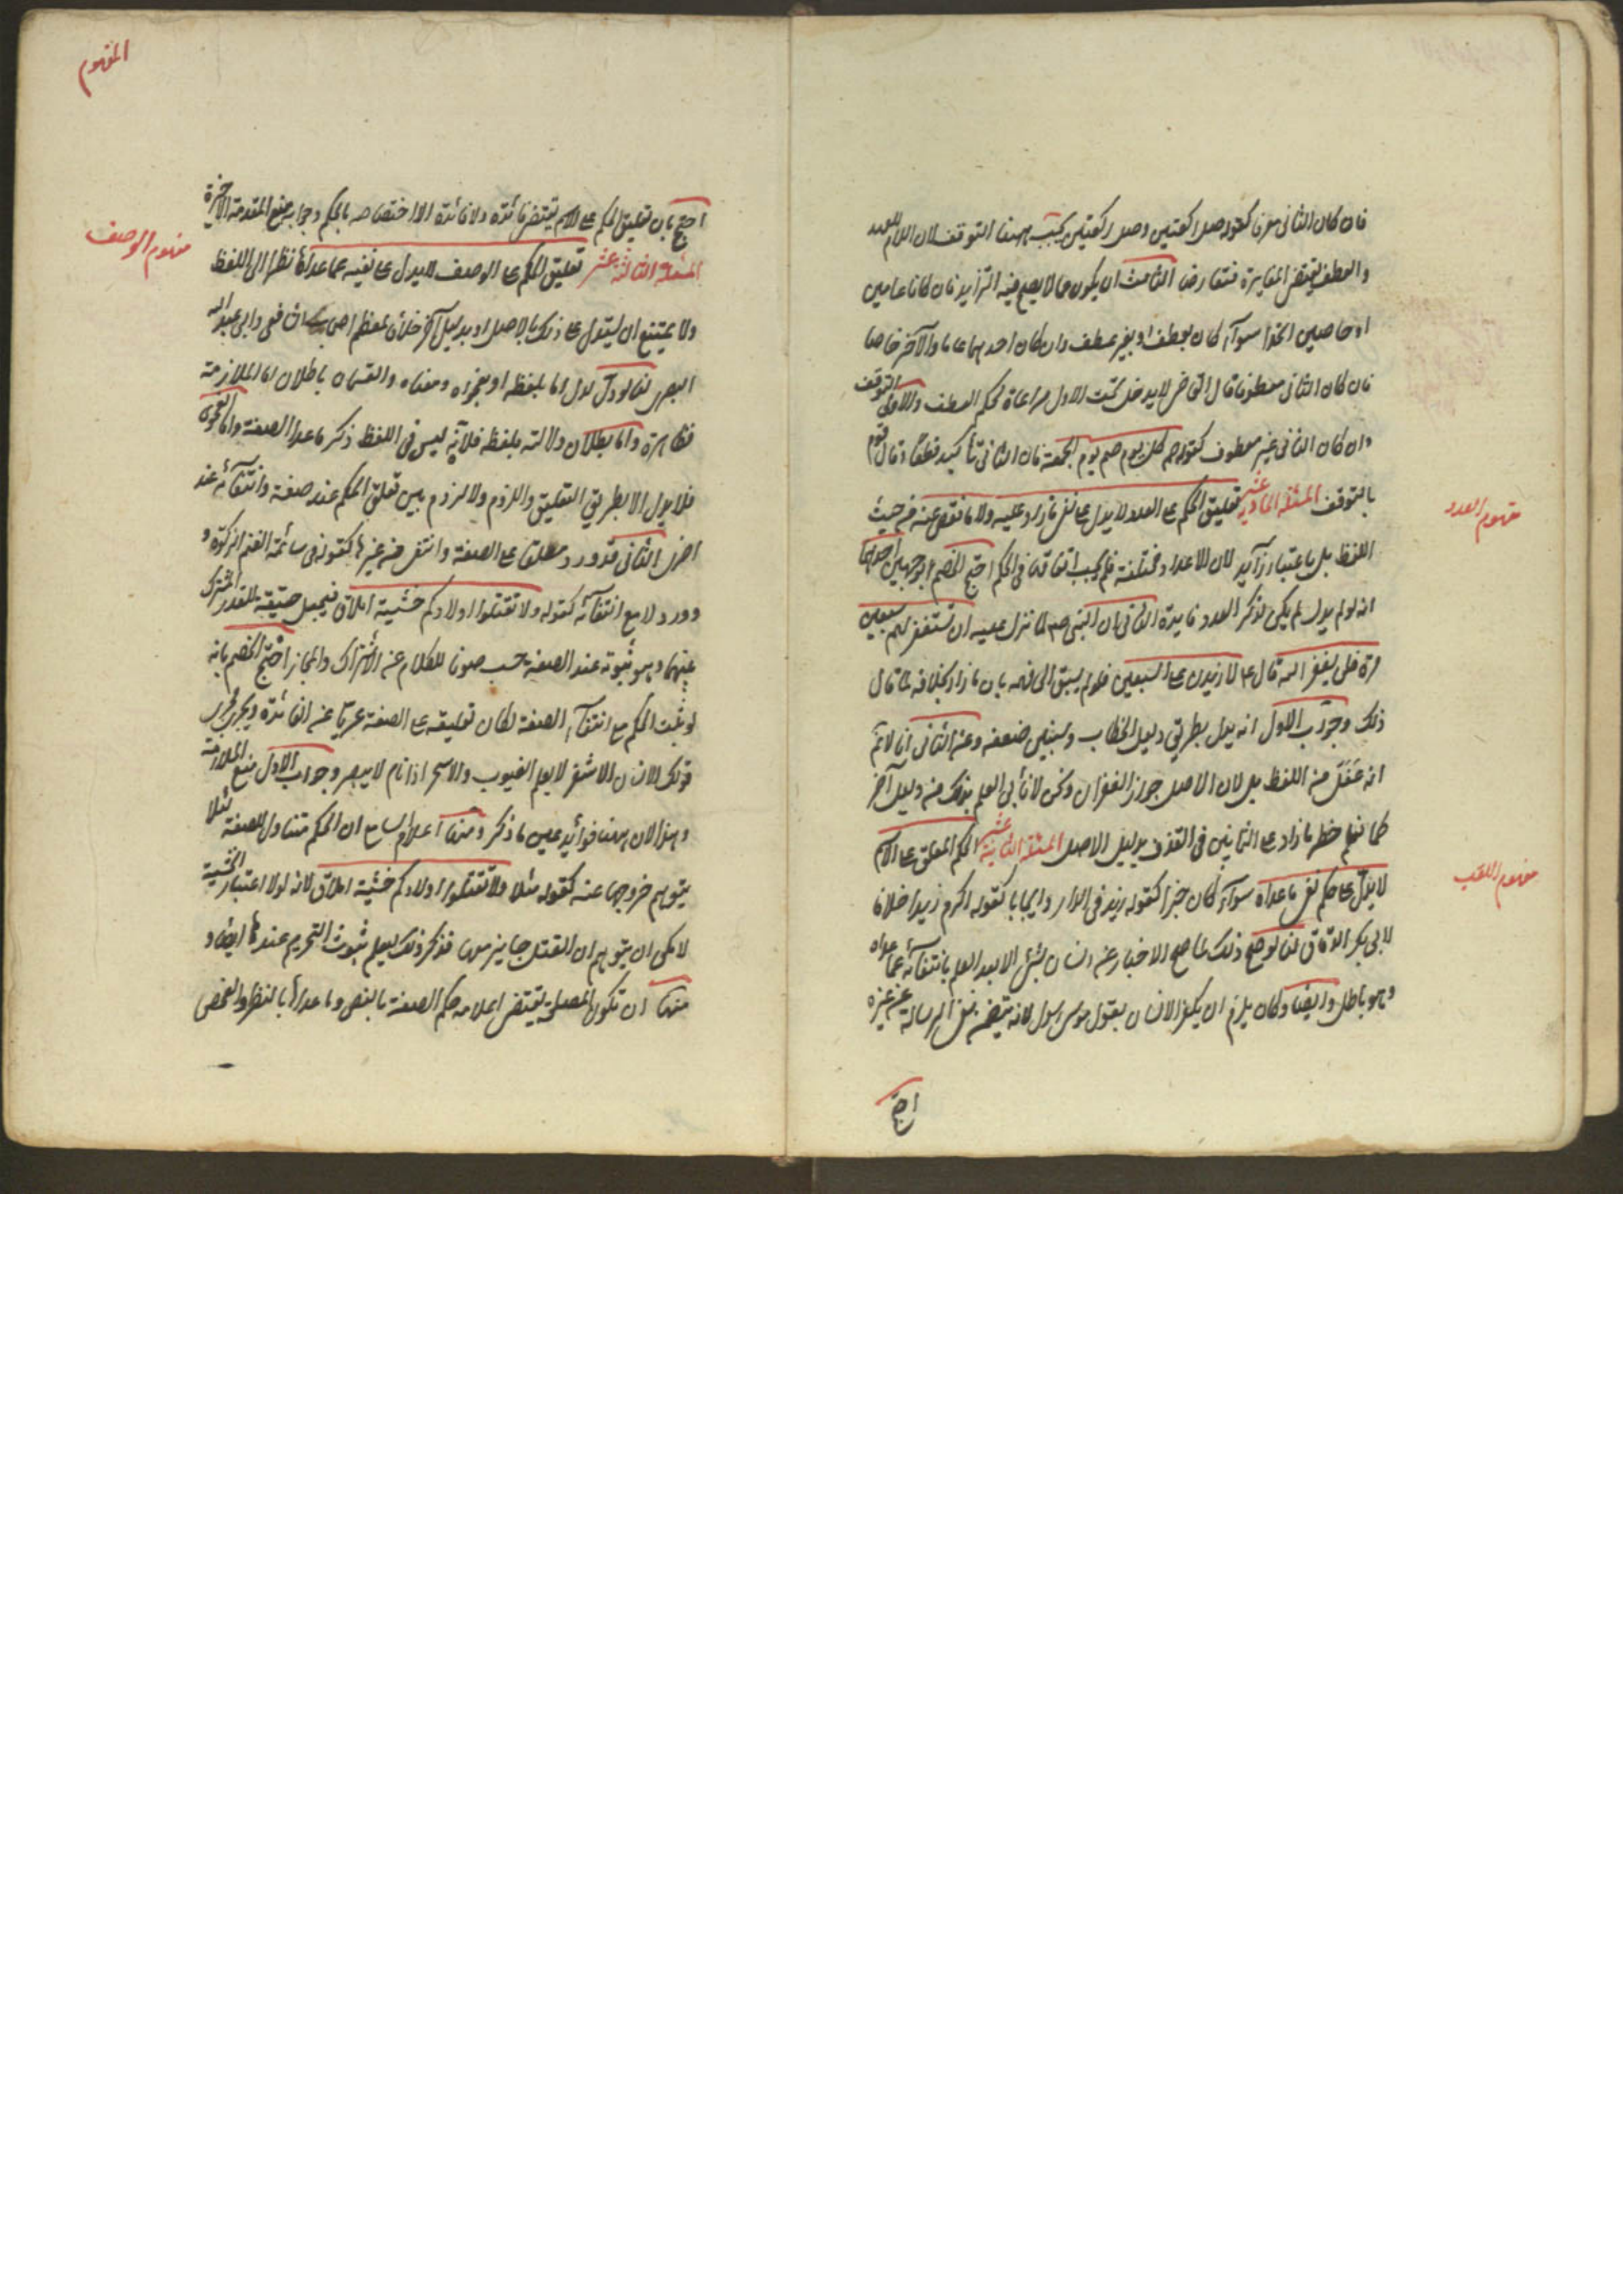 فان كان الثانى معرفا كقوله صل ركعتين وصل ركعتين يجب ههنا التوقف لان اللام للعهد
والعطف يقتضى المغايرة فتعارضا الثالث ان يكون مما لا يصح فيه التزايد فان كانا عامين
او خاصين اتحدا سوآء كان بعطف او بغير عطف وان كان احدهما عاما والآخر خاصا
فان كان الثانى معطوفا قال القاضى لا يدخل تحت الاول مراعاة لحكم العطف والاولى التوقف
وان كان الثانى غير معطوف كقوله صم كل يوم صم يوم الجمعة فان الثانى تأكيد قطعا وقال قوم
بالتوقف المسئلة الحادية عشر تعليق الحكم على العدد لا يدل على نفى ما زاد عليه ولا ما نقص عنه من حيث
مفهوم العدد
اللفظ بل باعتبار زآيد لان الاعداد مختلفة فلم يجب اتفاقها فى الحكم احتج الخصم بوجهين احدهما
انه لو لم يدل لم يكن لذكر العدد فايدة الثانى ان النبى صم لما نزل عليه ان تستغفر لهم سبعين
مرة فلن يغفر الله قال ع لازيدن على السبعين فلو لم يسبق الى فهمه بان ما زاد بخلافه لما قال
ذلك وجوآب الاول انه يدل بطريق دليل الخطاب وسنبين ضعفه وعن الثانى انا لا نم
انه عَقَلَ من اللفظ بل لان الاصل جواز الغفران ونحن لا نأبى العلم بذلك من دليل آخر
كما نعلم حظر ما زاد على الثمانين فى القذف بدليل الاصل المسئلة الثانية عشر الحكم المعلق على الاسم
لا يدل على حكم نفى ما عداه سوآء كان خبرا كقوله زيد فى الدار وايجابا كقوله اكرم زيدا خلافا
مفهوم اللقب
لابى بكر الدقاق لنا لو صح ذلك لما صح الاخبار عن انسان بشئ الا بعد العلم بانتفآئه عما عداه
وهو باطل وايضا وكان يلزم ان يكفر الانسان بقول موسى رسول لانه يتضمن نفى الرسالة عن غيره
احتج
المفهوم
احتج بان تعليق الحكم على الاسم يقتضى فائدة ولا فائدة الا اختصاصه بالحكم وجوابه منع المقدمة الاخيرة
المسئلة الثالثة عشر تعليق الحكم على الوصف لا يدل على نفيه عما عداه نظرا الى اللفظ
مفهوم الوصف
ولا يمتنع ان يدل على ذلك بالاصل او بدليل آخر خلافا لمعظم اصحاب الشافعى وابى عبد الله
البصرى لنا لو دل لدل اما بلفظه او بفحواه ومعناه والقسمان باطلان اما الملازمة
فظاهرة واما بطلان دلالته بلفظه فلانه ليس فى اللفظ ذكر ما عدا الصفة واما الفحوى
فلا يدل الا بطريق التعليق واللزوم ولا لزوم بين تعلق الحكم عند صفة وانتفآئه عند
اخرى الثانى قد ورد معلقا على الصفة وانتفى عن غيرها كقوله فى سائمة الغنم الزكوة و
وورد لا مع انتفآئه كقوله ولا تقتلوا اولادكم خشية املاق فيجعل حقيقة للقدر المشترك
بينهما وهو ثبوته عند الصفة حسب صونا للكلام عن الاشتراك والمجاز احتج الخصم بانه
لو ثبت الحكم مع انتفآء الصفة لكان تعليقه على الصفة عريا عن الفائدة ويجرى مجرى
قولك الانسان الاشقر لا يعلم الغيوب والاسمر اذا نام لا يبصر وجواب الاول منع الملازمة
وهذا لان ههنا فوآئد عين ما ذكر ومنها اعلام السامع ان الحكم متناول للصفة لئلا
يتوهم خروجها عنه كقوله مثلا ولا تقتلوا اولادكم خشية املاق لانه لولا اعتبار الخشية
لامكن ان يتوهم ان القتل جايز معها فذكر ذلك ليعلم ثبوت التحريم عندها ايضا و
منها ان تكون المصلحة يقتضى اعلامه حكم الصفة بالنص وما عداها بالنظر والفحص